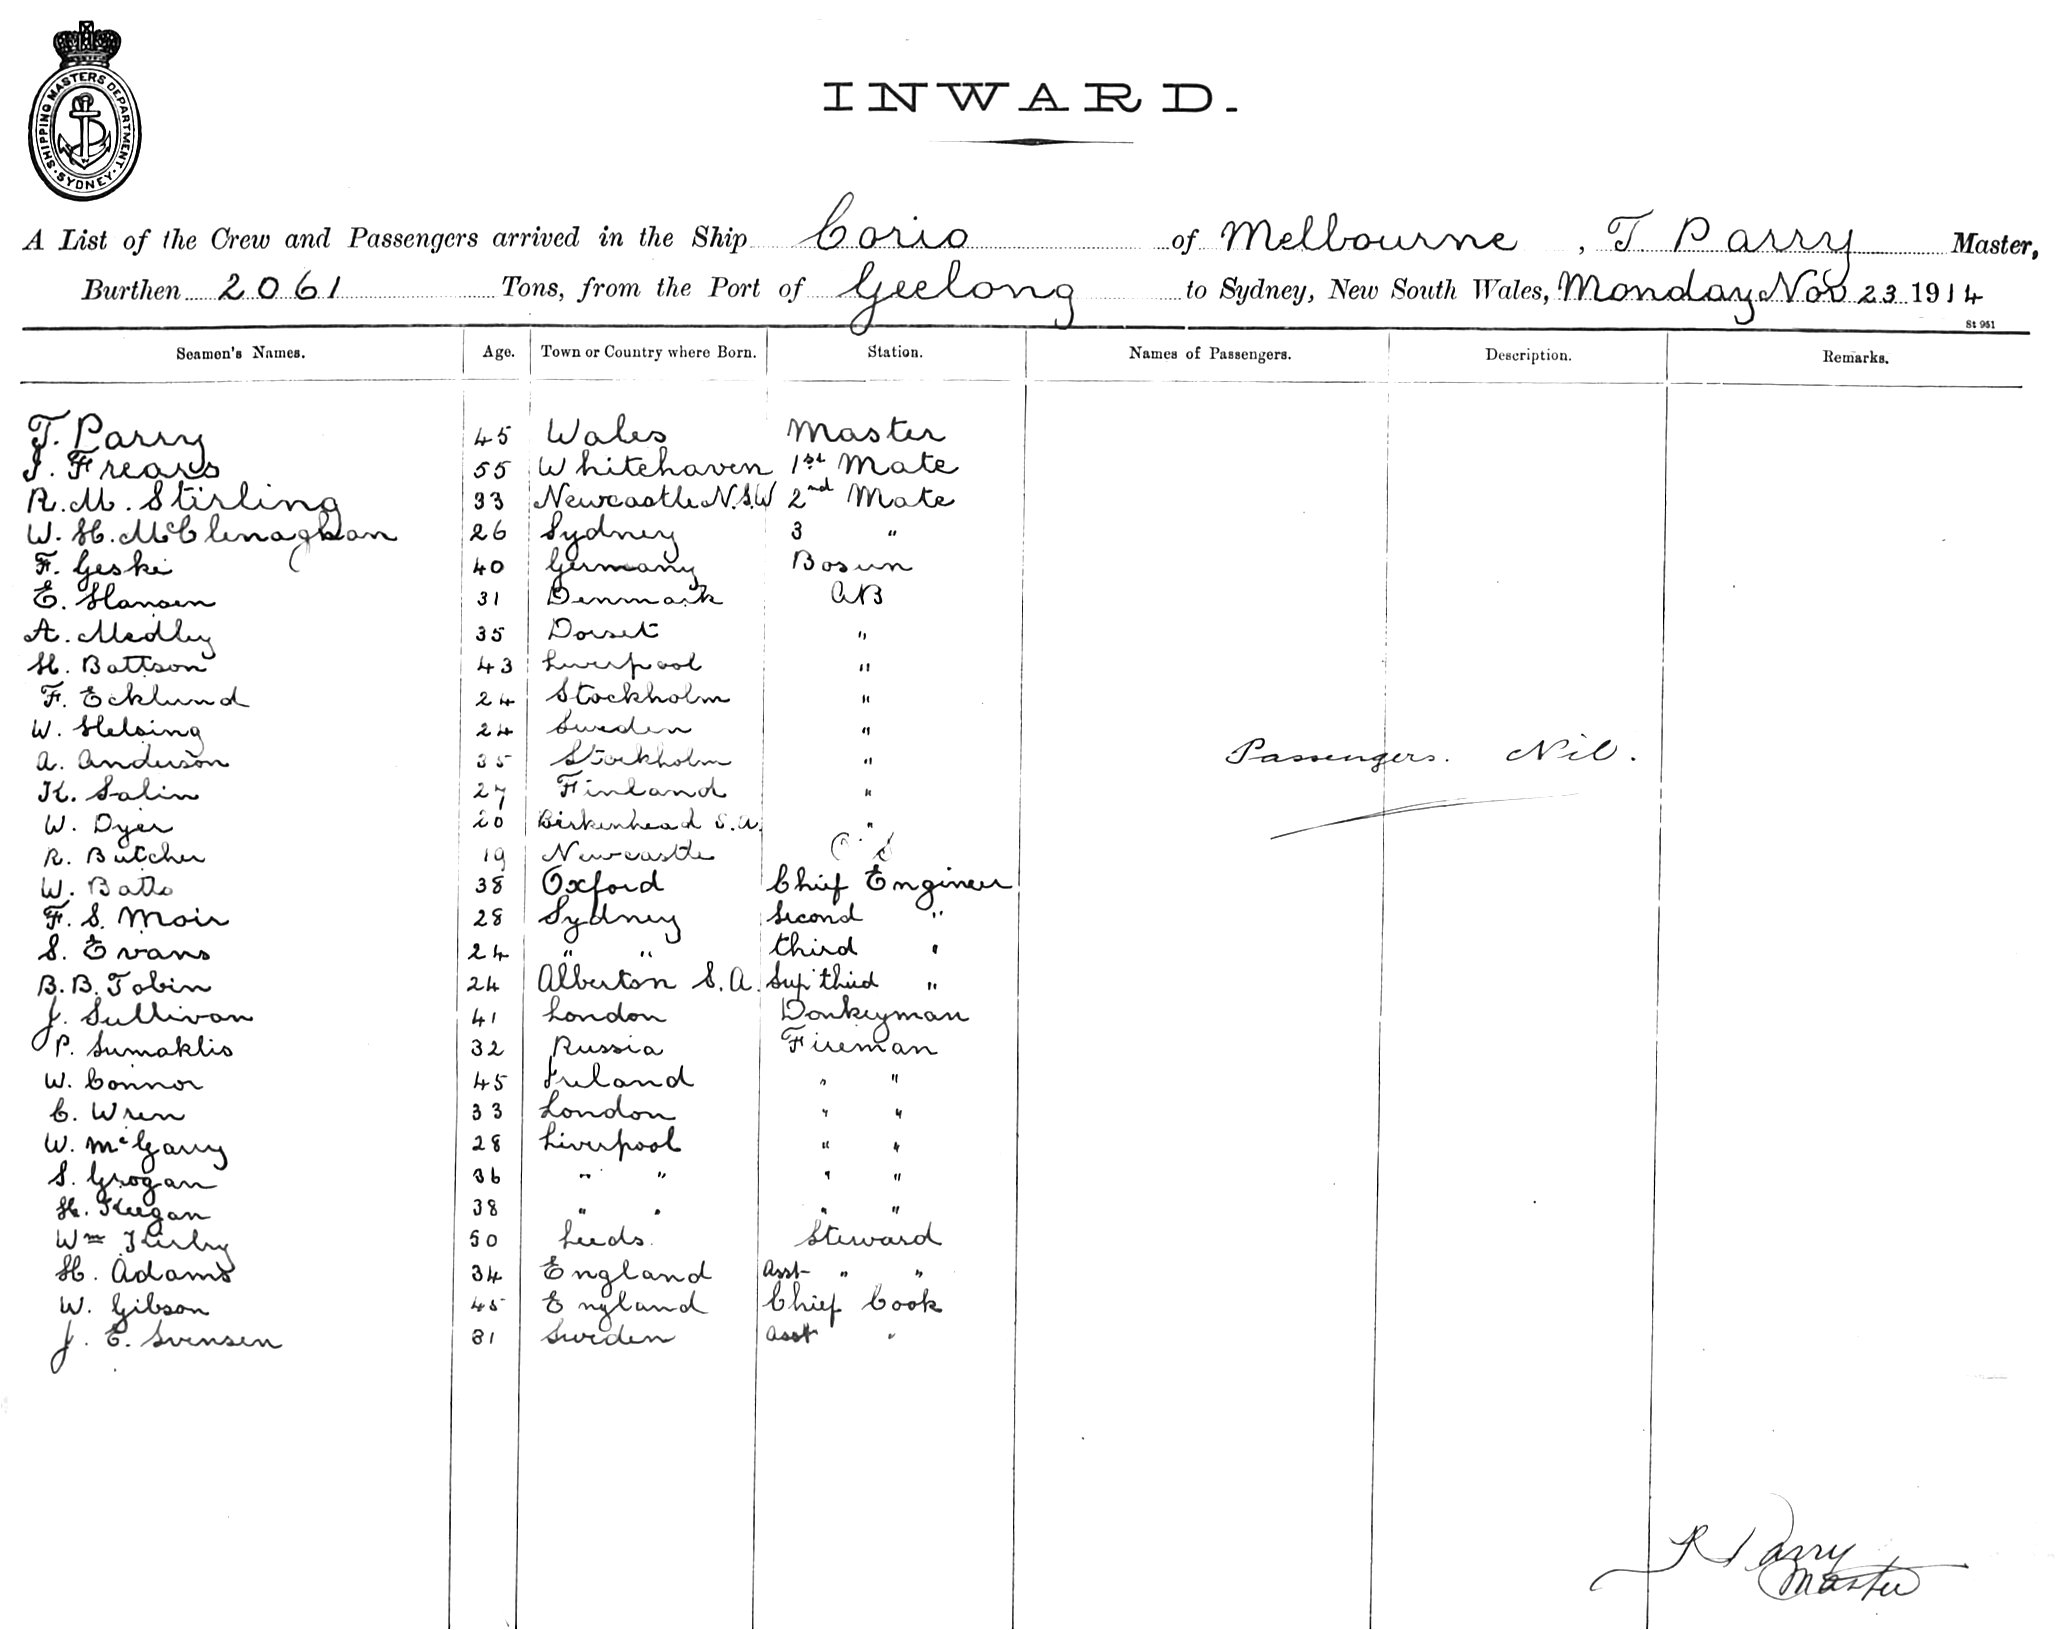 SHIPPING MASTERS DEPARTMENT
SYDNEY
INWARD.
A List of the Crew and Passengers arrived in the Ship Corio of Melbourne, T Parry Master,
Burthen 2061 Tons, from the Port of Geelong to Sydney, New South Wales, Monday Nov 23 1914
St 961
Seamen's Names. Age. Town or Country where Born. Station. Names of Passengers. Description. Remarks.
T. Parry 45 Wales Master
J. Frears 55 Whitehaven 1st Mate
R. M. Stirling 33 Newcastle N.S.W 2nd Mate
W. H. McClenaghan 26 Sydney 3 "
F. Geske 40 Germany Bosun
E. Hansen 31 Denmark AB
A. Medley 35 Dorset "
H. Battson 43 Liverpool "
F. Ecklund 24 Stockholm "
W. Helsing 24 Sweden "
A. Anderson 35 Stockholm "
Passengers. Nil.
K. Salin 27 Finland "
W. Dyer 20 Birkenhead S.A. "
R. Butcher 19 Newcastle
W. Batts 38 Oxford Chief Engineer
F. S. Moir 28 Sydney Second "
S. Evans 24 " " third "
B. B. Tobin 24 Alberton S.A. Sup third "
J. Sullivan 41 London Donkeyman
P. Sumaklis 32 Russia Fireman
W. Connor 45 Ireland " "
C. Wren 33 London " "
W. McGarry 28 Liverpool " "
S. Grogan 36 " " " "
H. Keegan 38 " " " "
Wm Kirby 50 Leeds. Steward
H. Adams 34 England Asst " "
W. Gibson 45 England Chief Cook
J. E. Svensen 31 Sweden Asst "
Parry
Master